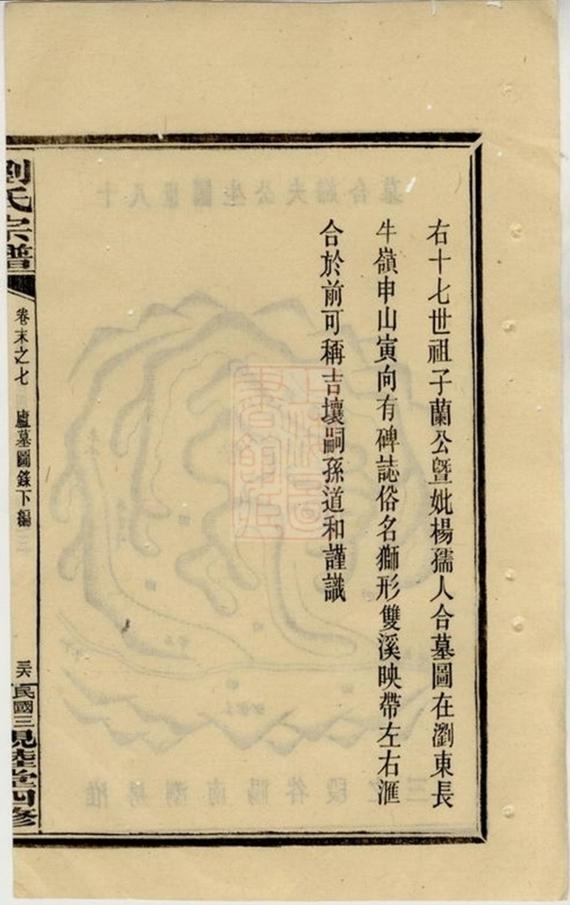 右十七世祖子蘭公暨妣楊孺人合墓圖在瀏東長
牛嶺申山寅向有碑誌俗名獅形雙溪映帶左右滙
合於前可稱吉壤嗣孫道和謹識
劉氏宗譜
卷末之七
廬墓圖錄下編
三六
民國三
親睦堂四修